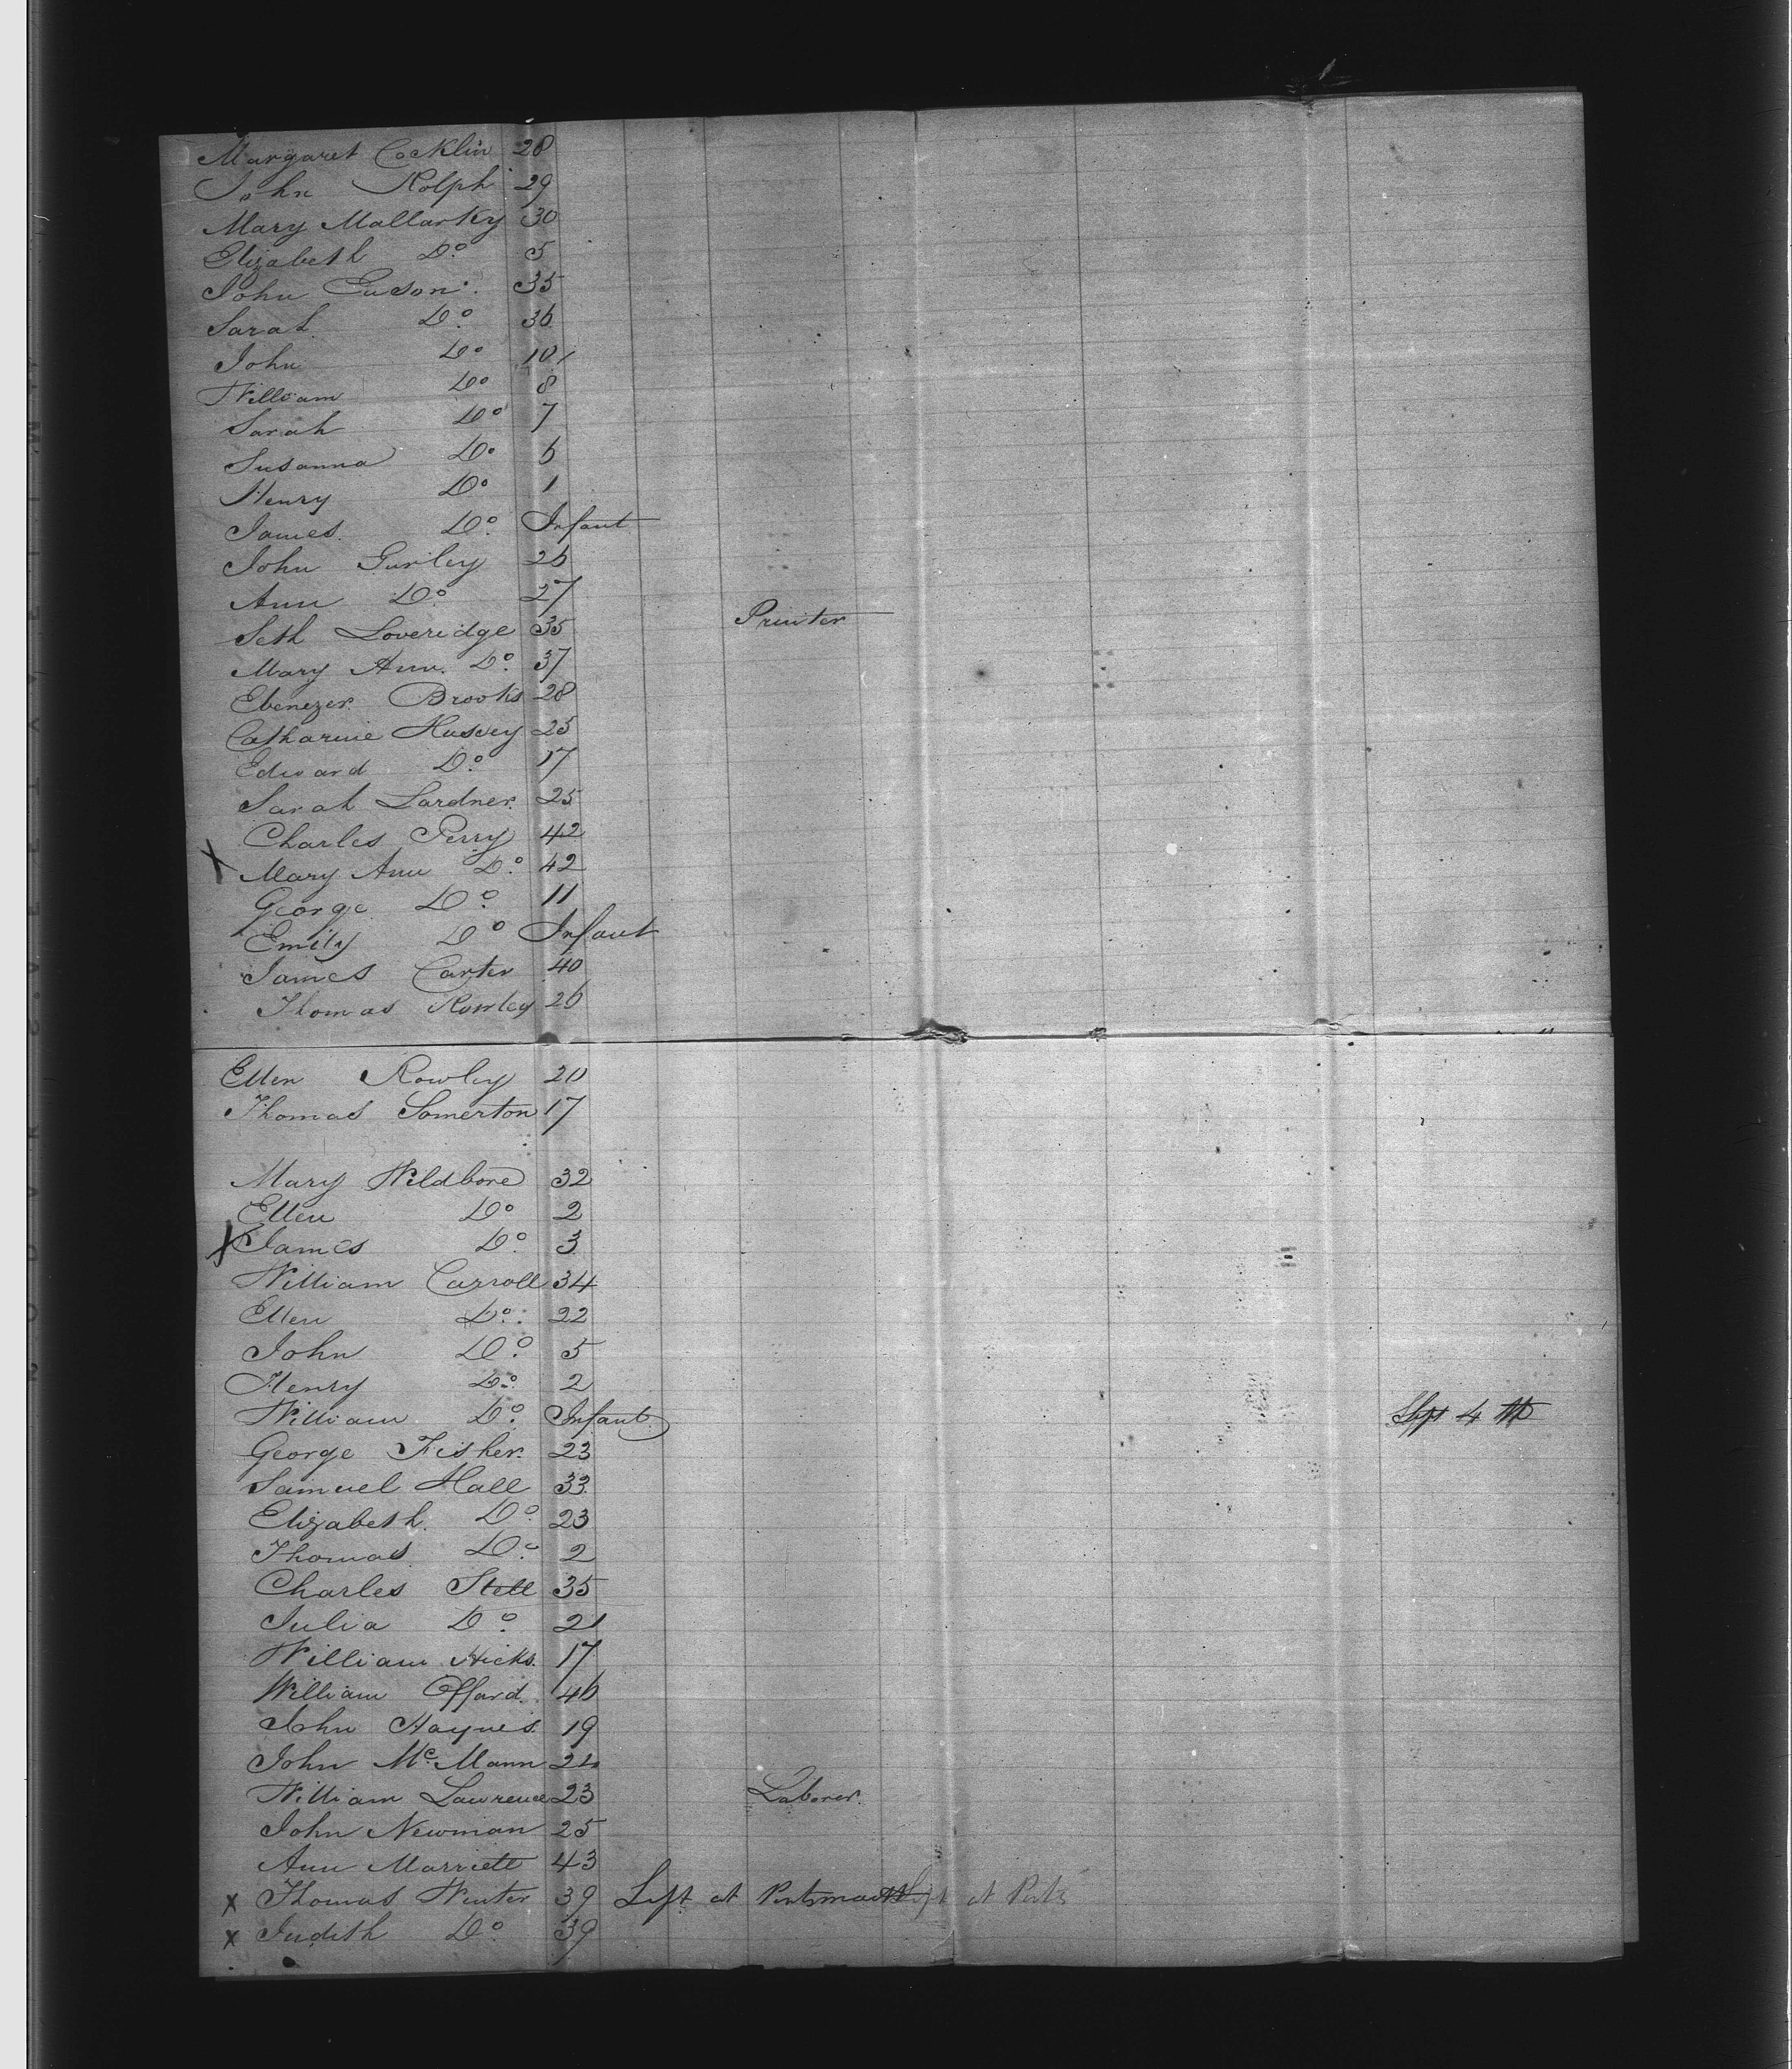 Margaret Cocklin 28
John Rolph 29
Mary Mallarky 30
Elizabeth Do 5
John Euson 35
Sarah Do 36
John Do 10
William Do 8
Sarah Do 7
Susanna Do 6
Henry Do 1
James Do Infant
John Gurley 26
Ann Do 27
Seth Loveridge 35 Printer
Mary Ann Do 37
Ebenezer Brooks 28
Catharine Hussey 25
Edward Do 17
Sarah Lardner 25
Charles Perry 42
x Mary Ann Do 42
George Do 11
Emily Do Infant
James Carter 40
Thomas Rowley 26
Ellen Rowley 20
Thomas Somerton 17
Mary Wildbore 32
Ellen Do 2
x James Do 3
William Carroll 34
Ellen Do 22
John Do 5
Henry Do 2
William Do Infant Sept 4th
George Fisher 23
Samuel Hall 33
Elizabeth Do 23
Thomas Do 2
Charles Stell 35
Julia Do 21
William Hicks 17
William Offord 46
John Haynes 19
John McMann 24
William Lawrence 23 Laborer
John Newman 25
Ann Marriett 43
x Thomas Winter 39 Left at Portsmouth Left at Ports
x Judith Do 39